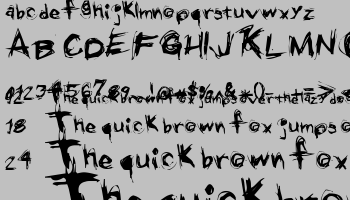 abcdefghijklmnopqrstuvwxyz
ABCDEFGHIJKLMNO
1234567890
12 The quick brown fox jumps over the lazy dog
18 The quick brown fox jumps o
24 The quick brown fox
The quick bro